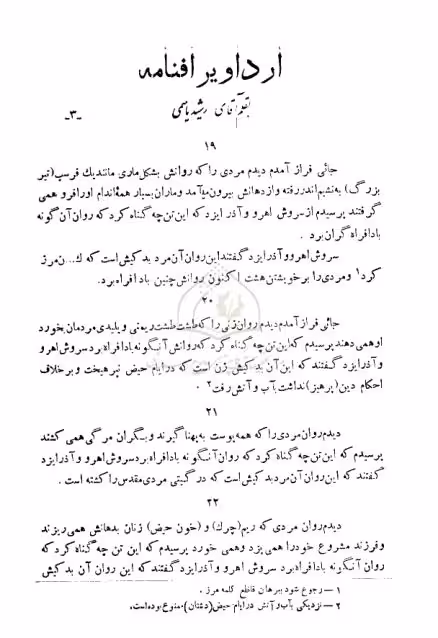 ارداویرافنامه
بقلم آقای رشید یاسمی
-۳-
۱۹
جائی فراز آمدم دیدم مردی را که روانش بشکل ماری مانند یك فرسپ (تیر
بزرگ) به نشیم اندر رفته و از دهانش بیرون میآمد و ماران بسیار همهٔ اندام او را فرو همی
گرفتند پرسیدم از سروش اهرو و آذر ایزد که این تن چه گناه کرد که روان آن گونه
بادافراه گران برد .
سروش اهرو و آذر ایزد گفتند این روان آن مرد بد کیش است که ك...ن مرز
کرد۱ و مردی را بر خویشتن هشت اکنون روانش چنین بادافراه برد.
۲۰
جائی فراز آمدم دیدم روان زنی را که طشت طشت ریمنی و پلیدی مردمان بخورد
او همی دهند پرسیدم که این تن چه گناه کرد که روانش آنگونه بادافراه برد سروش اهرو
و آذر ایزد گفتند که این آن بد کیش زن است که در ایام حیض نپرهیخت و بر خلاف
احکام دین (پرهیز) نداشت بآب و آتش رفت۲ .
۲۱
دیدم روان مردی را که همه پوست به پهنا گیرند و بگران مرگی همی کشند
پرسیدم که این تن چه گناه کرد که روان آنگونه بادافراه برد سروش اهرو و آذر ایزد
گفتند که این روان آن مرد بد کیش است که در گیتی مردی مقدس را کشته است .
۲۲
دیدم روان مردی که ریم (چرك) و (خون حیض) زنان بدهانش همی ریزند
و فرزند مشروع خود را همی پزد و همی خورد پرسیدم که این تن چه گناه کرد که
روان آنگونه بادافراه برد سروش اهرو و آذر ایزد گفتند که این روان آن بد کیش
۱ – رجوع شود ببرهان قاطع کلمه مرز .
۲ – نزدیکی بآب و آتش در ایام حیض (دشتان) ممنوع بوده است.